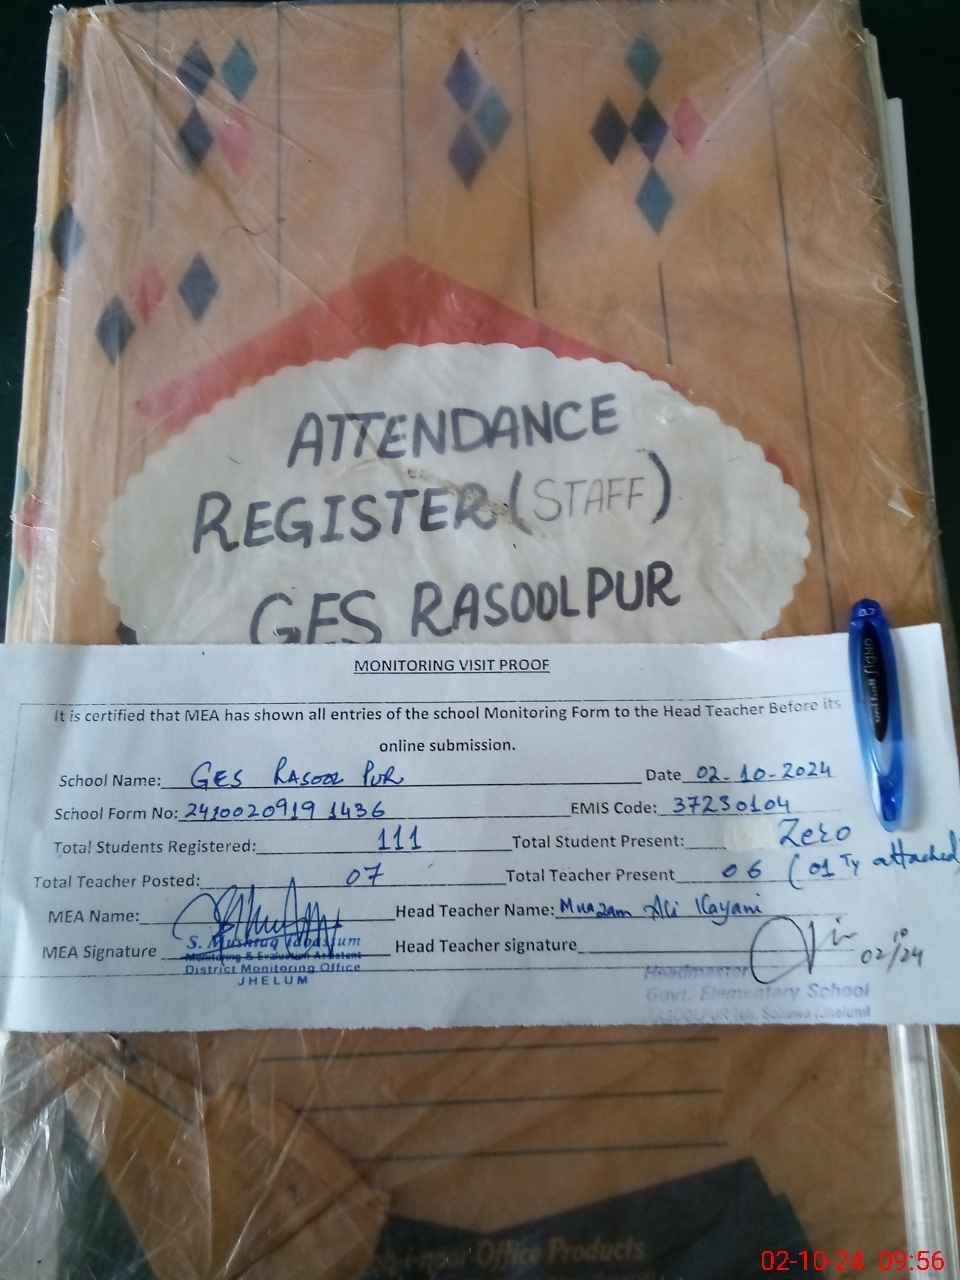 ATTENDANCE
REGISTER (STAFF)
GES RASOOLPUR
0.7
MONITORING VISIT PROOF
It is certified that MEA has shown all entries of the school Monitoring Form to the Head Teacher Before its
online submission.
School Name: GES RASOOL PUR Date 02-10-2024
School Form No: 2410020919 1436 EMIS Code: 37230104
Total Students Registered: 111 Total Student Present: Zero
Total Teacher Posted: 07 Total Teacher Present 06 (01 Ty attached)
MEA Name: Head Teacher Name: Muazam Ali Kayani
MEA Signature Head Teacher signature 02/10/24
S. Mushtaq Tabassum
Monitoring & Evaluation Assistant
District Monitoring Office
JHELUM
Headmaster
Govt. Elementary School
Office Products
02-10-24 09:56